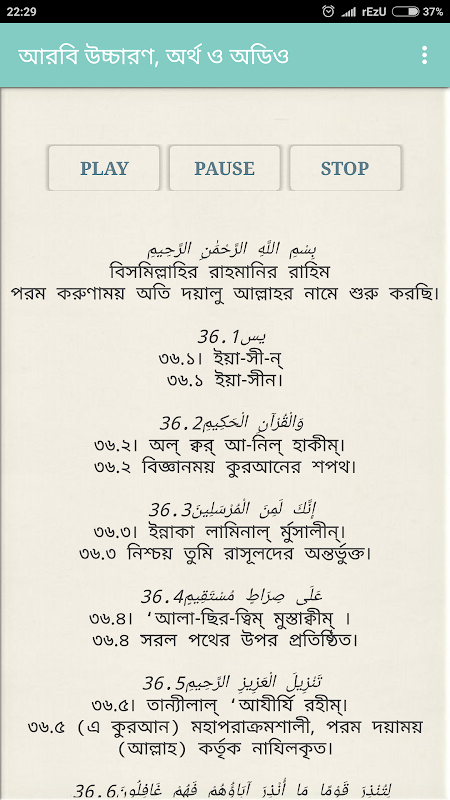 22:29 rEzU 37%
আরবি উচ্চারণ, অর্থ ও অডিও
PLAY PAUSE STOP
بِسْمِ اللَّهِ الرَّحْمَٰنِ الرَّحِيمِ
বিসমিল্লাহির রাহমানির রাহিম
পরম করুণাময় অতি দয়ালু আল্লাহর নামে শুরু করছি।
36.1يس
৩৬.১। ইয়া-সী-ন্
৩৬.১ ইয়া-সীন।
36.2وَالْقُرْآنِ الْحَكِيمِ
৩৬.২। অল্ ক্বর্ আ-নিল্ হাকীম্।
৩৬.২ বিজ্ঞানময় কুরআনের শপথ।
36.3إِنَّكَ لَمِنَ الْمُرْسَلِينَ
৩৬.৩। ইন্নাকা লামিনাল্ র্মুসালীন্।
৩৬.৩ নিশ্চয় তুমি রাসূলদের অন্তর্ভুক্ত।
36.4عَلَى صِرَاطٍ مُسْتَقِيمٍ
৩৬.৪। ‘আলা-ছির-ত্বিম্ মুস্তাক্বীম্ ।
৩৬.৪ সরল পথের উপর প্রতিষ্ঠিত।
36.5تَنْزِيلَ الْعَزِيزِ الرَّحِيمِ
৩৬.৫। তান্যীলাল্ ‘আযীর্যি রহীম্।
৩৬.৫ (এ কুরআন) মহাপরাক্রমশালী, পরম দয়াময়
(আল্লাহ) কর্তৃক নাযিলকৃত।
36.6لِتُنْذِرَ قَوْمًا مَا أُنْذِرَ آبَاؤُهُمْ فَهُمْ غَافِلُونَ